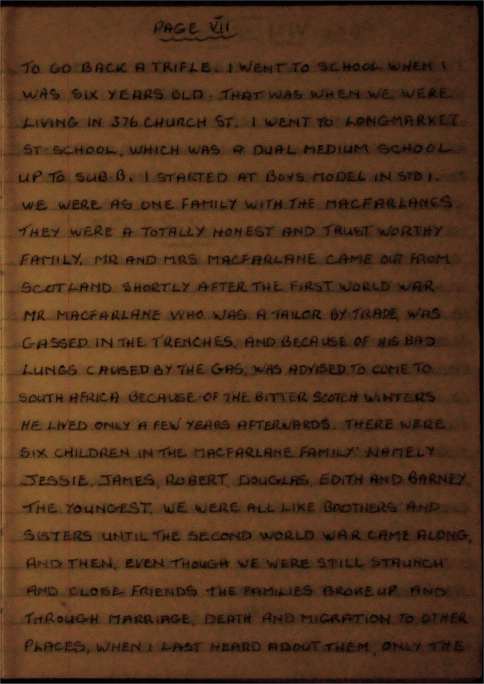 PAGE VII
TO GO BACK A TRIFLE. I WENT TO SCHOOL WHEN I
WAS SIX YEARS OLD. THAT WAS WHEN WE WERE
LIVING IN 376 CHURCH ST. I WENT TO LONGMARKET
ST SCHOOL, WHICH WAS A DUAL MEDIUM SCHOOL
UP TO SUB B. I STARTED AT BOYS MODEL IN STD I.
WE WERE AS ONE FAMILY WITH THE MACFARLANES.
THEY WERE A TOTALLY HONEST AND TRUST WORTHY
FAMILY. MR AND MRS MACFARLANE CAME OUT FROM
SCOTLAND SHORTLY AFTER THE FIRST WORLD WAR.
MR MACFARLANE WHO WAS A TAILOR BY TRADE, WAS
GASSED IN THE TRENCHES, AND BECAUSE OF HIS BAD
LUNGS CAUSED BY THE GAS, WAS ADVISED TO COME TO
SOUTH AFRICA BECAUSE OF THE BITTER SCOTCH WINTERS
HE LIVED ONLY A FEW YEARS AFTERWARDS. THERE WERE
SIX CHILDREN IN THE MACFARLANE FAMILY. NAMELY
JESSIE, JAMES, ROBERT, DOUGLAS, EDITH AND BARNEY
THE YOUNGEST. WE WERE ALL LIKE BROTHERS AND
SISTERS UNTIL THE SECOND WORLD WAR CAME ALONG,
AND THEN, EVEN THOUGH WE WERE STILL STAUNCH
AND CLOSE FRIENDS THE FAMILIES BROKE UP AND
THROUGH MARRIAGE, DEATH AND MIGRATION TO OTHER
PLACES, WHEN I LAST HEARD ABOUT THEM, ONLY THE